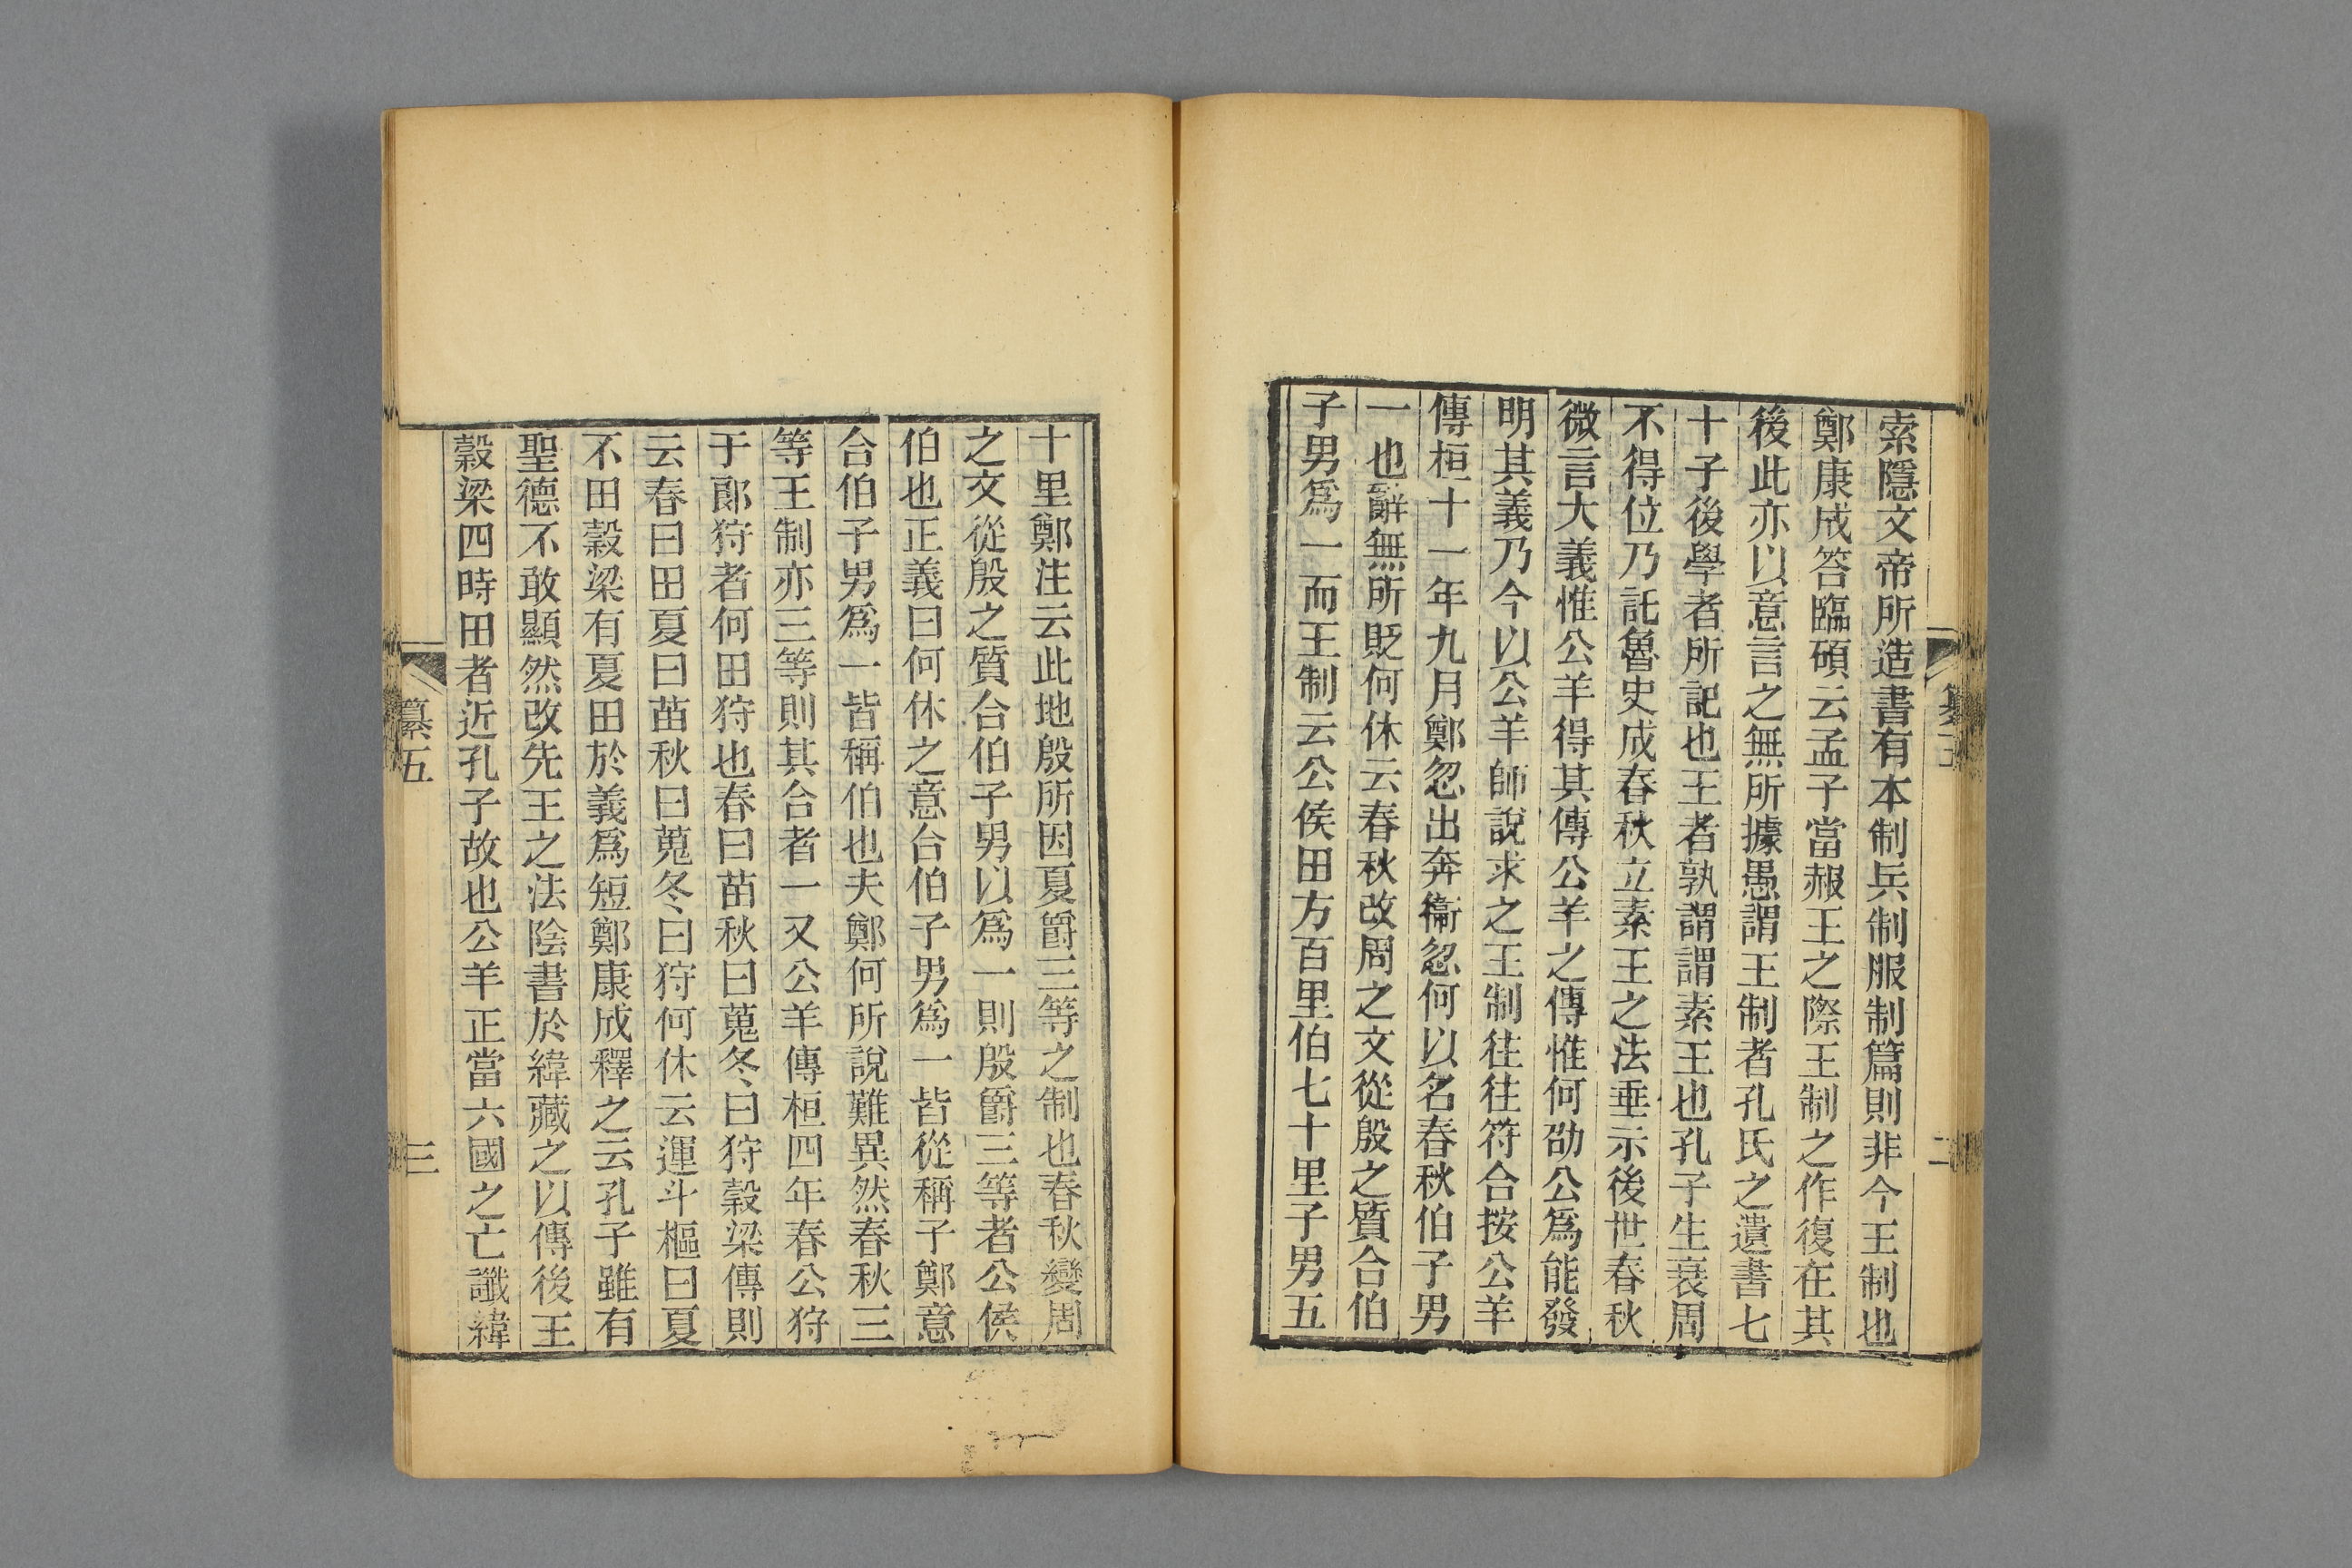 索隱文帝所造書有本制兵制服制篇則非今王制也
鄭康成答臨碩云孟子當赧王之際王制之作復在其
後此亦以意言之無所據愚謂王制者孔氏之遺書七
十子後學者所記也王者孰謂謂素王也孔子生衰周
不得位乃託魯史成春秋立素王之法垂示後世春秋
微言大義惟公羊得其傳公羊之傳惟何劭公爲能發
明其義乃今以公羊師說求之王制往往符合按公羊
傳桓十一年九月鄭忽出奔衞忽何以名春秋伯子男
一也辭無所貶何休云春秋改周之文從殷之質合伯
子男爲一而王制云公侯田方百里伯七十里子男五
纂五
二
十里鄭注云此地殷所因夏爵三等之制也春秋變周
之文從殷之質合伯子男以爲一則殷爵三等者公侯
伯也正義曰何休之意合伯子男爲一皆從稱子鄭意
合伯子男爲一皆稱伯也夫鄭何所說雖異然春秋三
等王制亦三等則其合者一又公羊傳桓四年春公狩
于郎狩者何田狩也春曰苗秋曰蒐冬曰狩穀梁傳則
云春曰田夏曰苗秋曰蒐冬曰狩何休云運斗樞曰夏
不田穀梁有夏田於義爲短鄭康成釋之云孔子雖有
聖德不敢顯然改先王之法陰書於緯藏之以傳後王
穀梁四時田者近孔子故也公羊正當六國之亡讖緯
纂五
三